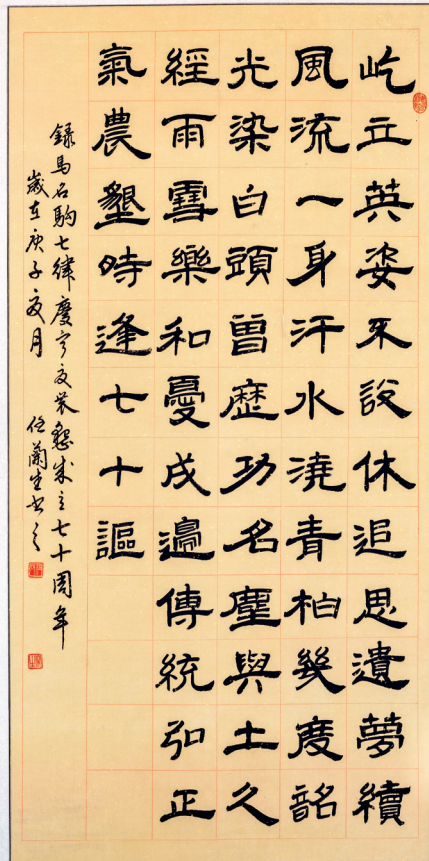 屹立英姿不説休追思遺夢續
風流一身汗水澆青柏幾度韶
光染白頭曾歷功名塵與土久
經雨雪樂和憂戍邊傳統弘正
氣農墾時逢七十謳
錄馬石駒七律慶宁夏農墾成立七十周年
歲在庚子夏月 任蘭生書之